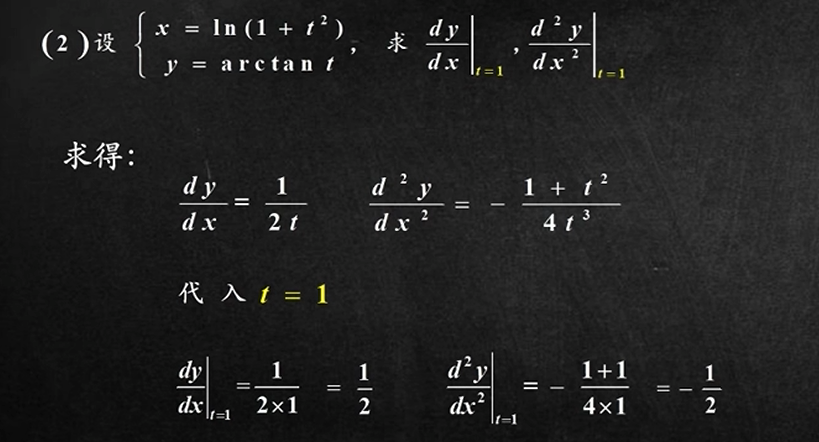 (2)设 { x = ln(1 + t²), y = arctan t , 求 dy/dx|t=1 , d²y/dx²|t=1
求得:
dy/dx = 1/2t   d²y/dx² = - (1 + t²)/4t³
代入 t = 1
dy/dx|t=1 = 1/2×1 = 1/2   d²y/dx²|t=1 = - 1+1/4×1 = - 1/2